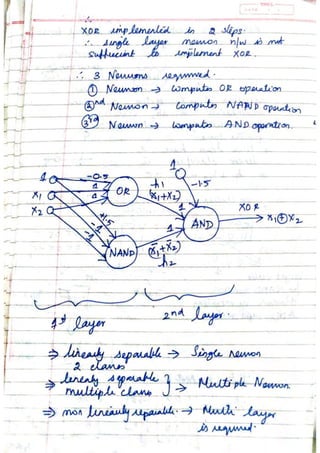 ∴
XOR implemented in 2 steps.
∴ single layer neuron n/w is not
sufficient to implement XOR.
∴ 3 Neurons required.
① Neuron → computes OR operation
②nd Neuron → computes NAND operation
③rd Neuron → computes AND operation.
1
-0.5
1
x1
1
x2
OR
h1
(x1+x2)
1
1
-1.5
AND
XOR
x1⊕x2
+1.5
-1
-1
NAND
(x̄1+x̄2)
h2
1
1st layer
2nd layer
⇒ linearly separable → Single neuron
2 classes
⇒ linearly separable } → Multiple Neuron
multiple classes
⇒ non linearly separable. → Multi layer
is required.